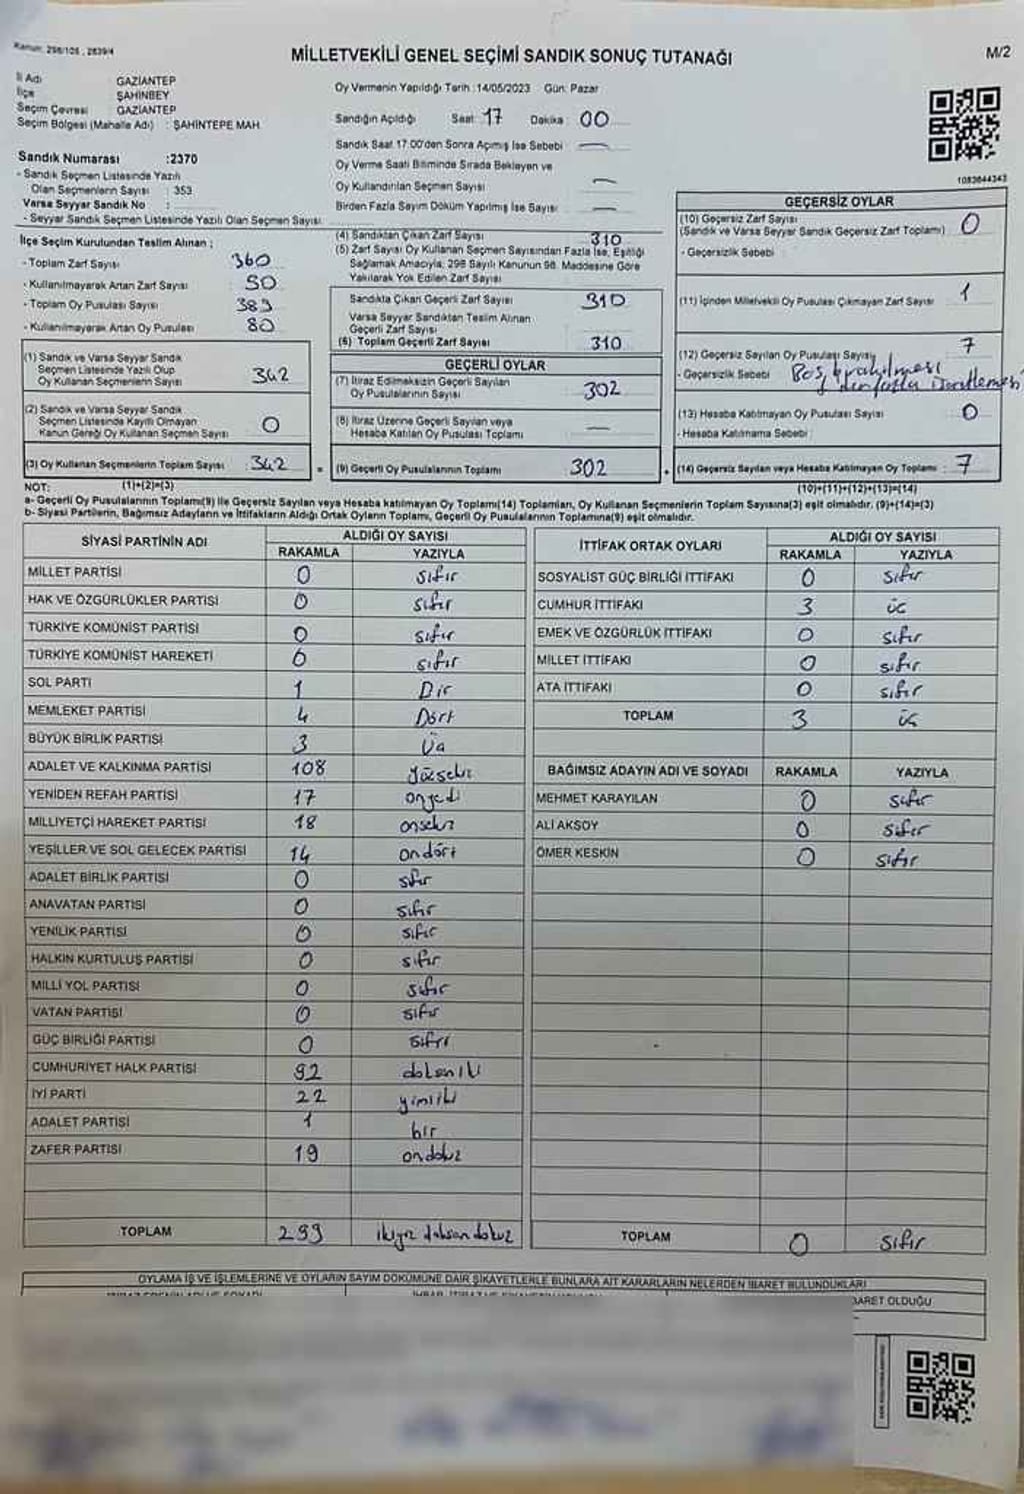 Kanun: 298/105, 2839/4
MİLLETVEKİLİ GENEL SEÇİMİ SANDIK SONUÇ TUTANAĞI
M/2
İl Adı GAZİANTEP
İlçe ŞAHİNBEY
Seçim Çevresi GAZİANTEP
Seçim Bölgesi (Mahalle Adı) : ŞAHİNTEPE MAH.
Sandık Numarası :2370
- Sandık Seçmen Listesinde Yazılı
Olan Seçmenlerin Sayısı : 353
Varsa Seyyar Sandık No :
- Seyyar Sandık Seçmen Listesinde Yazılı Olan Seçmen Sayısı:
Oy Vermenin Yapıldığı Tarih :14/05/2023 Gün: Pazar
Sandığın Açıldığı Saat 17 Dakika : 00
Sandık Saat 17:00'den Sonra Açımış İse Sebebi : —
Oy Verme Saati Bitiminde Sırada Bekleyen ve
Oy Kullandırılan Seçmen Sayısı —
Birden Fazla Sayım Döküm Yapılmış İse Sayısı —
1083644343
İlçe Seçim Kurulundan Teslim Alınan ;
- Toplam Zarf Sayısı 360
- Kullanılmayarak Artan Zarf Sayısı 50
- Toplam Oy Pusulası Sayısı 383
- Kullanılmayarak Artan Oy Pusulası 80
(1) Sandık ve Varsa Seyyar Sandık
Seçmen Listesinde Yazılı Olup
Oy Kullanan Seçmenlerin Sayısı 342
(2) Sandık ve Varsa Seyyar Sandık
Seçmen Listesinde Kayıtlı Olmayan
Kanun Gereği Oy Kullanan Seçmen Sayısı 0
(3) Oy Kullanan Seçmenlerin Toplam Sayısı 342
(1)+(2)=(3)
(4) Sandıktan Çıkan Zarf Sayısı 310
(5) Zarf Sayısı Oy Kullanan Seçmen Sayısından Fazla İse, Eşitliği
Sağlamak Amacıyla, 298 Sayılı Kanunun 98. Maddesine Göre
Yakılarak Yok Edilen Zarf Sayısı
Sandıkta Çıkan Geçerli Zarf Sayısı 310
Varsa Seyyar Sandıktan Teslim Alınan
Geçerli Zarf Sayısı
(6) Toplam Geçerli Zarf Sayısı 310
GEÇERLİ OYLAR
(7) İtiraz Edilmeksizin Geçerli Sayılan
Oy Pusulalarının Sayısı 302
(8) İtiraz Üzerine Geçerli Sayılan veya
Hesaba Katılan Oy Pusulası Toplamı —
(9) Geçerli Oy Pusulalarının Toplamı 302
GEÇERSİZ OYLAR
(10) Geçersiz Zarf Sayısı 0
(Sandık ve Varsa Seyyar Sandık Geçersiz Zarf Toplamı)
- Geçersizlik Sebebi
(11) İçinden Milletvekili Oy Pusulası Çıkmayan Zarf Sayısı 1
(12) Geçersiz Sayılan Oy Pusulası Sayısı 7
- Geçersizlik Sebebi Boş bırakılması
(13) Hesaba Katılmayan Oy Pusulası Sayısı 0
- Hesaba Katılmama Sebebi :
(14) Geçersiz Sayılan veya Hesaba Katılmayan Oy Toplamı : 7
(10)+(11)+(12)+(13)=(14)
NOT:
a- Geçerli Oy Pusulalarının Toplamı(9) ile Geçersiz Sayılan veya Hesaba katılmayan Oy Toplamı(14) Toplamları, Oy Kullanan Seçmenlerin Toplam Sayısına(3) eşit olmalıdır. (9)+(14)=(3)
b- Siyasi Partilerin, Bağımsız Adayların ve İttifakların Aldığı Ortak Oyların Toplamı, Geçerli Oy Pusulalarının Toplamına(9) eşit olmalıdır.
SİYASİ PARTİNİN ADI ALDIĞI OY SAYISI
RAKAMLA YAZIYLA
MİLLET PARTİSİ 0 sıfır
HAK VE ÖZGÜRLÜKLER PARTİSİ 0 sıfır
TÜRKİYE KOMÜNİST PARTİSİ 0 sıfır
TÜRKİYE KOMÜNİST HAREKETİ 0 sıfır
SOL PARTİ 1 Bir
MEMLEKET PARTİSİ 4 Dört
BÜYÜK BİRLİK PARTİSİ 3 Üç
ADALET VE KALKINMA PARTİSİ 108 yüzsekiz
YENİDEN REFAH PARTİSİ 17 onyedi
MİLLİYETÇİ HAREKET PARTİSİ 18 onsekiz
YEŞİLLER VE SOL GELECEK PARTİSİ 14 ondört
ADALET BİRLİK PARTİSİ 0 sıfır
ANAVATAN PARTİSİ 0 sıfır
YENİLİK PARTİSİ 0 sıfır
HALKIN KURTULUŞ PARTİSİ 0 sıfır
MİLLİ YOL PARTİSİ 0 sıfır
VATAN PARTİSİ 0 sıfır
GÜÇ BİRLİĞİ PARTİSİ 0 sıfır
CUMHURİYET HALK PARTİSİ 92 doksaniki
İYİ PARTİ 22 yirmiiki
ADALET PARTİSİ 1 bir
ZAFER PARTİSİ 19 ondokuz
TOPLAM 299 ikiyüz doksan dokuz
İTTİFAK ORTAK OYLARI ALDIĞI OY SAYISI
RAKAMLA YAZIYLA
SOSYALİST GÜÇ BİRLİĞİ İTTİFAKI 0 sıfır
CUMHUR İTTİFAKI 3 üç
EMEK VE ÖZGÜRLÜK İTTİFAKI 0 sıfır
MİLLET İTTİFAKI 0 sıfır
ATA İTTİFAKI 0 sıfır
TOPLAM 3 üç
BAĞIMSIZ ADAYIN ADI VE SOYADI RAKAMLA YAZIYLA
MEHMET KARAYILAN 0 sıfır
ALİ AKSOY 0 sıfır
ÖMER KESKİN 0 sıfır
TOPLAM 0 sıfır
OYLAMA İŞ VE İŞLEMLERİNE VE OYLARIN SAYIM DÖKÜMÜNE DAİR ŞİKAYETLERLE BUNLARA AİT KARARLARIN NELERDEN İBARET BULUNDUKLARI
BARET OLDUĞU